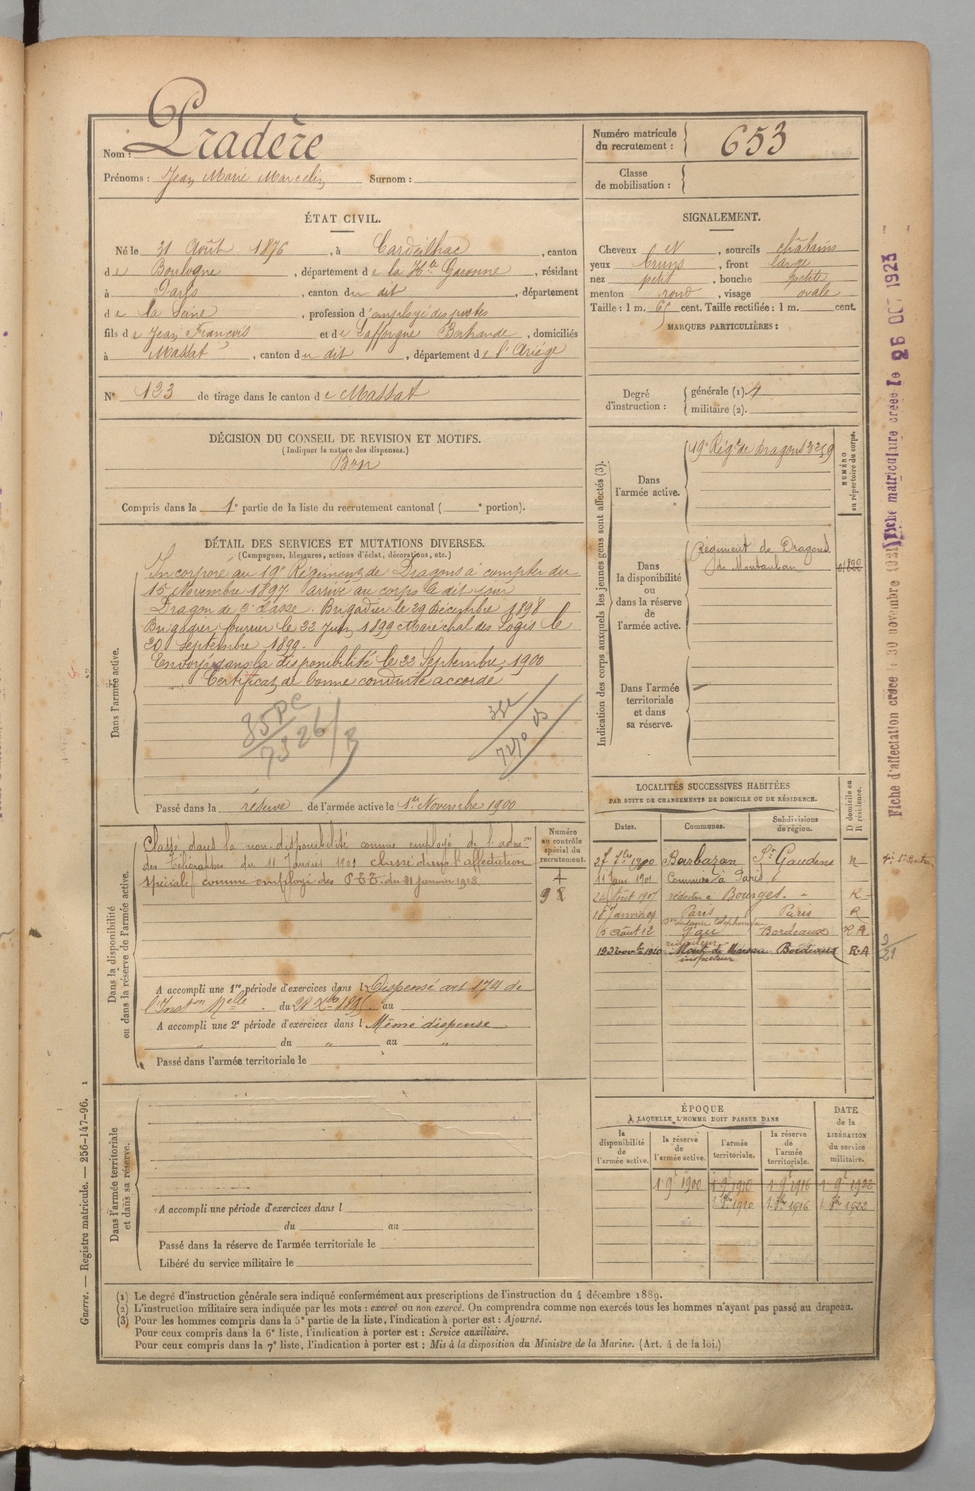 Nom : Pradère
Prénoms : Jean Marie Marcelin Surnom :
Numéro matricule du recrutement : 653
Classe de mobilisation :
ÉTAT CIVIL.
Né le 21 Août 1876, à Cardeilhac, canton
de Boulogne, département de la Hte Garonne, résidant
à Paris, canton du dit, département
de la Seine, profession d'employé des postes
fils de Jean François et de Lafforgue Bertrande, domiciliés
à Massat, canton du dit, département de l'Ariège
N° 123 de tirage dans le canton de Massat
SIGNALEMENT.
Cheveux et, sourcils châtains
yeux bruns, front large
nez petit, bouche petite
menton rond, visage ovale
Taille : 1 m. 65 cent. Taille rectifiée : 1 m. cent.
MARQUES PARTICULIÈRES :
Degré d'instruction : générale (1). 4
militaire (2).
DÉCISION DU CONSEIL DE REVISION ET MOTIFS.
(Indiquer la nature des dispenses.)
Bon
Compris dans la 1e partie de la liste du recrutement cantonal ( e portion).
DÉTAIL DES SERVICES ET MUTATIONS DIVERSES.
(Campagnes, blessures, actions d'éclat, décorations, etc.)
Dans l'armée active.
Incorporé au 19e Régiment de Dragons à compter du
15 Novembre 1897 arrivé au corps le dit jour
Dragon de 2e classe. Brigadier le 29 Décembre 1898
Brigadier fourrier le 22 Juin 1899 Maréchal des Logis le
20 Septembre 1899.
Envoyé dans la disponibilité le 22 Septembre 1900
Certificat de bonne conduite accordé
Passé dans la réserve de l'armée active le 1er Novembre 1900
Indication des corps auxquels les jeunes gens sont affectés (3).
NUMÉRO au répertoire du corps.
Dans l'armée active.
19e Régt de dragons 3259
Dans la disponibilité ou dans la réserve de l'armée active.
Régiment de Dragons
de Montauban
Dans l'armée territoriale et dans sa réserve.
Dans la disponibilité ou dans la réserve de l'armée active.
Classé dans la non-disponibilité comme employé de l'admon
des Télégraphes du 11 Janvier 1901 classé dans l'affectation
spéciale comme employé des PTT du 21 janvier 1918
Numéro au contrôle spécial du recrutement.
A accompli une 1re période d'exercices dans l Dispensé art 174 de
l'Inston Melle du 20 Xbre 1895 au
A accompli une 2e période d'exercices dans l Même dispense
" du " au "
Passé dans l'armée territoriale le
LOCALITÉS SUCCESSIVES HABITÉES
PAR SUITE DE CHANGEMENTS DE DOMICILE OU DE RÉSIDENCE.
Dates. Communes. Subdivisions de région. D domicile ou R résidence.
27 7bre 1900 Barbazan St Gaudens R
11 Janv 1901 Commis à Paris
Août 1907 rédacteur Bourges - R
18 janvier 09 Paris Paris R
6 août 12 Pau Bordeaux R A
Mont de Marsan Bordeaux R A
inspecteur
Dans l'armée territoriale et dans sa réserve.
A accompli une période d'exercices dans l
du au
Passé dans la réserve de l'armée territoriale le
Libéré du service militaire le
ÉPOQUE
À LAQUELLE L'HOMME DOIT PASSER DANS
la disponibilité de l'armée active. la réserve de l'armée active. l'armée territoriale. la réserve de l'armée territoriale. DATE de la LIBÉRATION du service militaire.
1 9e 1900 1 9e 1910 1 9e 1916 1 9e 1922
1 8bre 1910 1 8bre 1916 1 8bre 1922
(1) Le degré d'instruction générale sera indiqué conformément aux prescriptions de l'instruction du 4 décembre 1889.
(2) L'instruction militaire sera indiquée par les mots : exercé ou non exercé. On comprendra comme non exercés tous les hommes n'ayant pas passé au drapeau.
(3) Pour les hommes compris dans la 5e partie de la liste, l'indication à porter est : Ajourné.
Pour ceux compris dans la 6e liste, l'indication à porter est : Service auxiliaire.
Pour ceux compris dans la 7e liste, l'indication à porter est : Mis à la disposition du Ministre de la Marine. (Art. 4 de la loi.)
Guerre. — Registre matricule. — 256-147-96. 1
Fiche matriculaire créée le 26 OCT 1923
Fiche d'affectation créée le 30 novembre